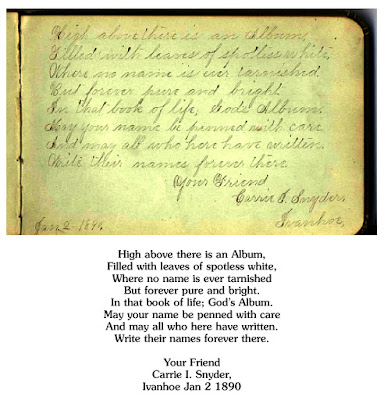 High above there is an Album,
Filled with leaves of spotless white,
Where no name is ever tarnished
But forever pure and bright.
In that book of life; Gods Album.
May your name be penned with care
And may all who here have written.
Write their names forever there.
Your Friend
Carrie I. Snyder,
Ivanhoe,
Jan 2 - 1890
High above there is an Album,
Filled with leaves of spotless white,
Where no name is ever tarnished
But forever pure and bright.
In that book of life; God's Album.
May your name be penned with care
And may all who here have written.
Write their names forever there.
Your Friend
Carrie I. Snyder,
Ivanhoe Jan 2 1890